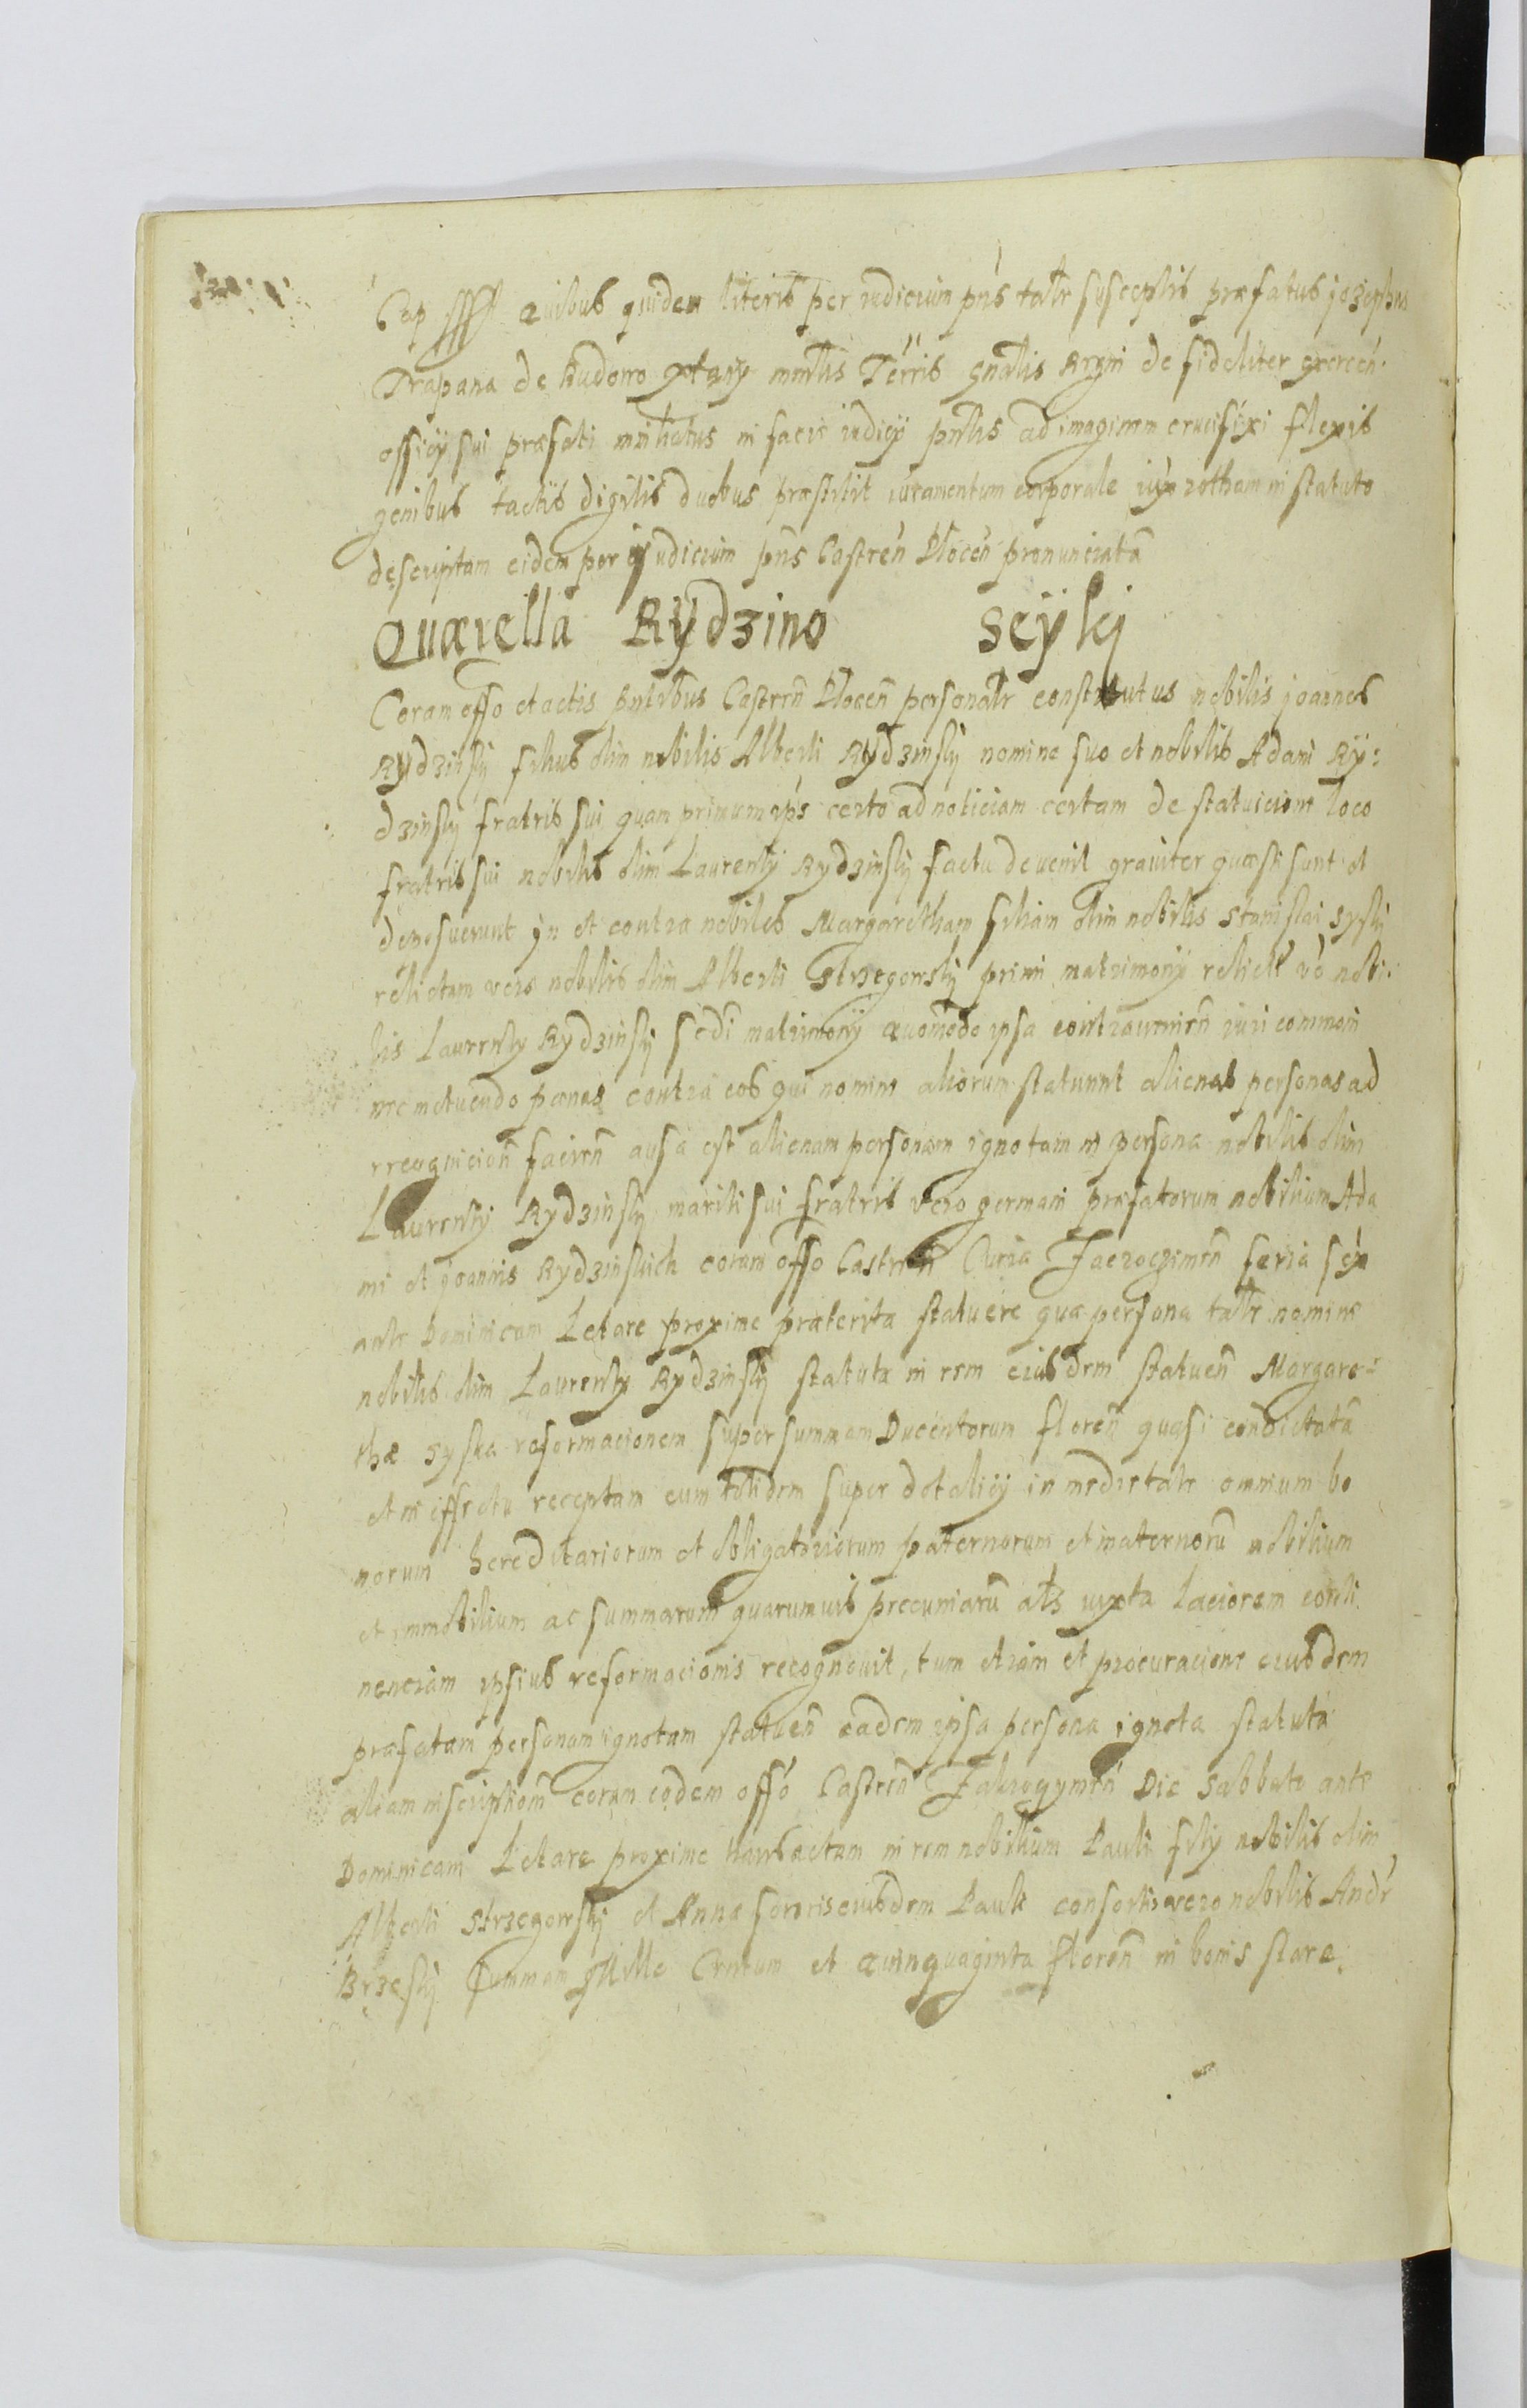 Cap Quibus quidem literis per iudicium pñs talr susceptis præfatus jozephus
Drapana de Rudowo mnlis Terris gnalis Regni de fideliter exercen.
officij sui præfati mnlñatus in facie iudicij pñtis ad imaginem crucifixi flexis
genibus tactis digitis duobus præstitit iuramentum corporale iux rotham in statuto
descriptam eidem per iudicium pñs Castreñ Plocen pronunciatã
Quærella Rydzino Seyskj
Coram offo et actis pñtibus Castreñ Ploceñ personalr constitutus nobilis joannes
Rydzinskj filius olim nobilis Alberti Rydzinskj nomine suo et nobilis Adami Ry:
dzinskj fratris sui quam primum ips certo ad noticiam certam de statuicione loco
fratris sui nobilis olim Laurentij Rydzinskj facta devenit graviter quæsti sunt et
deposuerunt jn et contra nobiles Margaretham filiam olim nobilis Stanislai Syskj
relictam vero nobilis olim Alberti Strzegowskj primi matrimonij relict vo nobi:
lis Laurentij Rydzinskj scdi matrimonij quomodo ipsa contraveniẽn iuri communi
nec metuendo pœnas contra eos qui nomine aliorum statuunt alienas personas ad
recognicioñ facieñ ausa est alienam personam ignotam in persona nobilis olim
Laurentij Rydzinskj mariti sui fratris vero germani præfatorum nobilium Ada
mi et joannis Rydzinskich coram offo Castreñ Curia Zacroczimeñ feria sex
ante Dominicam Letare proxime præterita statuere quæ persona talr nomine
nobilis olim Laurentij Rydzinskj statuta in rem eiusdem statueñ Margare:
thæ Syska reformacionem super summam Ducentorum floreñ quasi condictatã
et in effectu receptam cum totidem super dotalicij in medietate omnium bo
norum hereditariorum et obligatoriorum paternorum et maternorũ mobilium
et immobilium ac summarum quarumvis pecuniarũ als iuxta laciorem conti
nenciam ipsius reformacionis recognovit, tum etiam et procuracione eiusdem
præfatam personam ignotam statueñ eadem ipsa persona ignota statuta
aliam inscriptioñ coram eodem offo Castreñ Zakroczymeñ Die Sabbato ante
Dominicam Letare proxime transactam in rem nobilium Pauli filij nobilis olim
Alberti Strzegowskj et Annæ sororis eiusdem Pauli consortis vero nobilis Andr
Brzeskj Summam Mille Centum et Quinquaginta floreñ in bonis stare